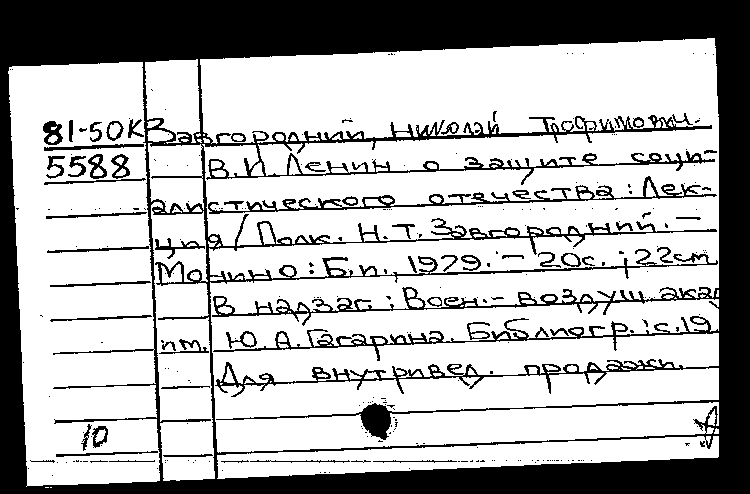 81-50К Завгородний, Николай Трофимович.
5588 В.И. Ленин о защите соци-
алистического отечества : Лек-
ция / Полк. Н.Т. Завгородний. –
Монино : Б.и., 1979. – 20с. ; 22см
В надзаг. : Воен.-воздуш. ака
им. Ю.А. Гагарина. Библиогр. : с.19
Для внутривед. продажи.
10